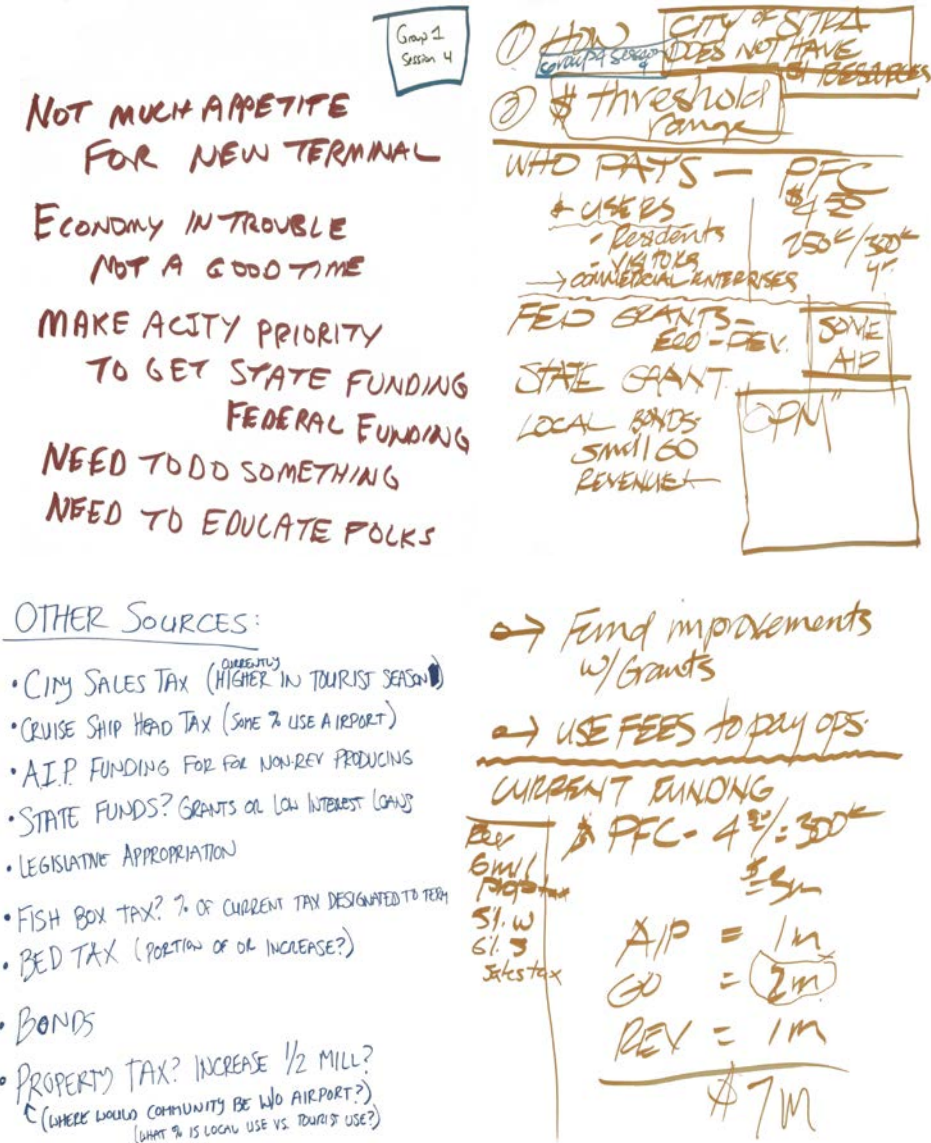 Group 1
Session 4
NOT MUCH APPETITE
FOR NEW TERMINAL
ECONOMY IN TROUBLE
NOT A GOOD TIME
MAKE A CITY PRIORITY
TO GET STATE FUNDING
FEDERAL FUNDING
NEED TO DO SOMETHING
NEED TO EDUCATE FOLKS
① HOW
CITY OF SITKA
DOES NOT HAVE
$ RESOURCES
② $ threshold
range
WHO PAYS — PFC
USERS
$4.50
- Residents
250K/300K
yr.
- VISITORS
→ COMMERCIAL ENTERPRISES
FED GRANTS -
ECO - DEV.
SOME
AIP
STATE GRANT
LOCAL BONDS
Small GO
REVENUE
"OPM"
OTHER SOURCES:
• CITY SALES TAX (CURRENTLY HIGHER IN TOURIST SEASON)
• CRUISE SHIP HEAD TAX (SOME % USE AIRPORT)
• A.I.P. FUNDING FOR FOR NON-REV PRODUCING
• STATE FUNDS? GRANTS OR LOW INTEREST LOANS
• LEGISLATIVE APPROPRIATION
• FISH BOX TAX? % OF CURRENT TAX DESIGNATED TO TERM
• BED TAX (PORTION OF OR INCREASE?)
• BONDS
• PROPERTY TAX? INCREASE 1/2 MILL?
(WHERE WOULD COMMUNITY BE W/O AIRPORT?)
(WHAT % IS LOCAL USE VS. TOURIST USE?)
→ Fund improvements
w/ Grants
→ USE FEES to pay ops.
CURRENT FUNDING
6 mil
Prop tax
5% W
6% S
Sales tax
PFC - 4.50/ = 300K
$ = 3m
AIP = 1m
GO = 2m
REV = 1m
$7m